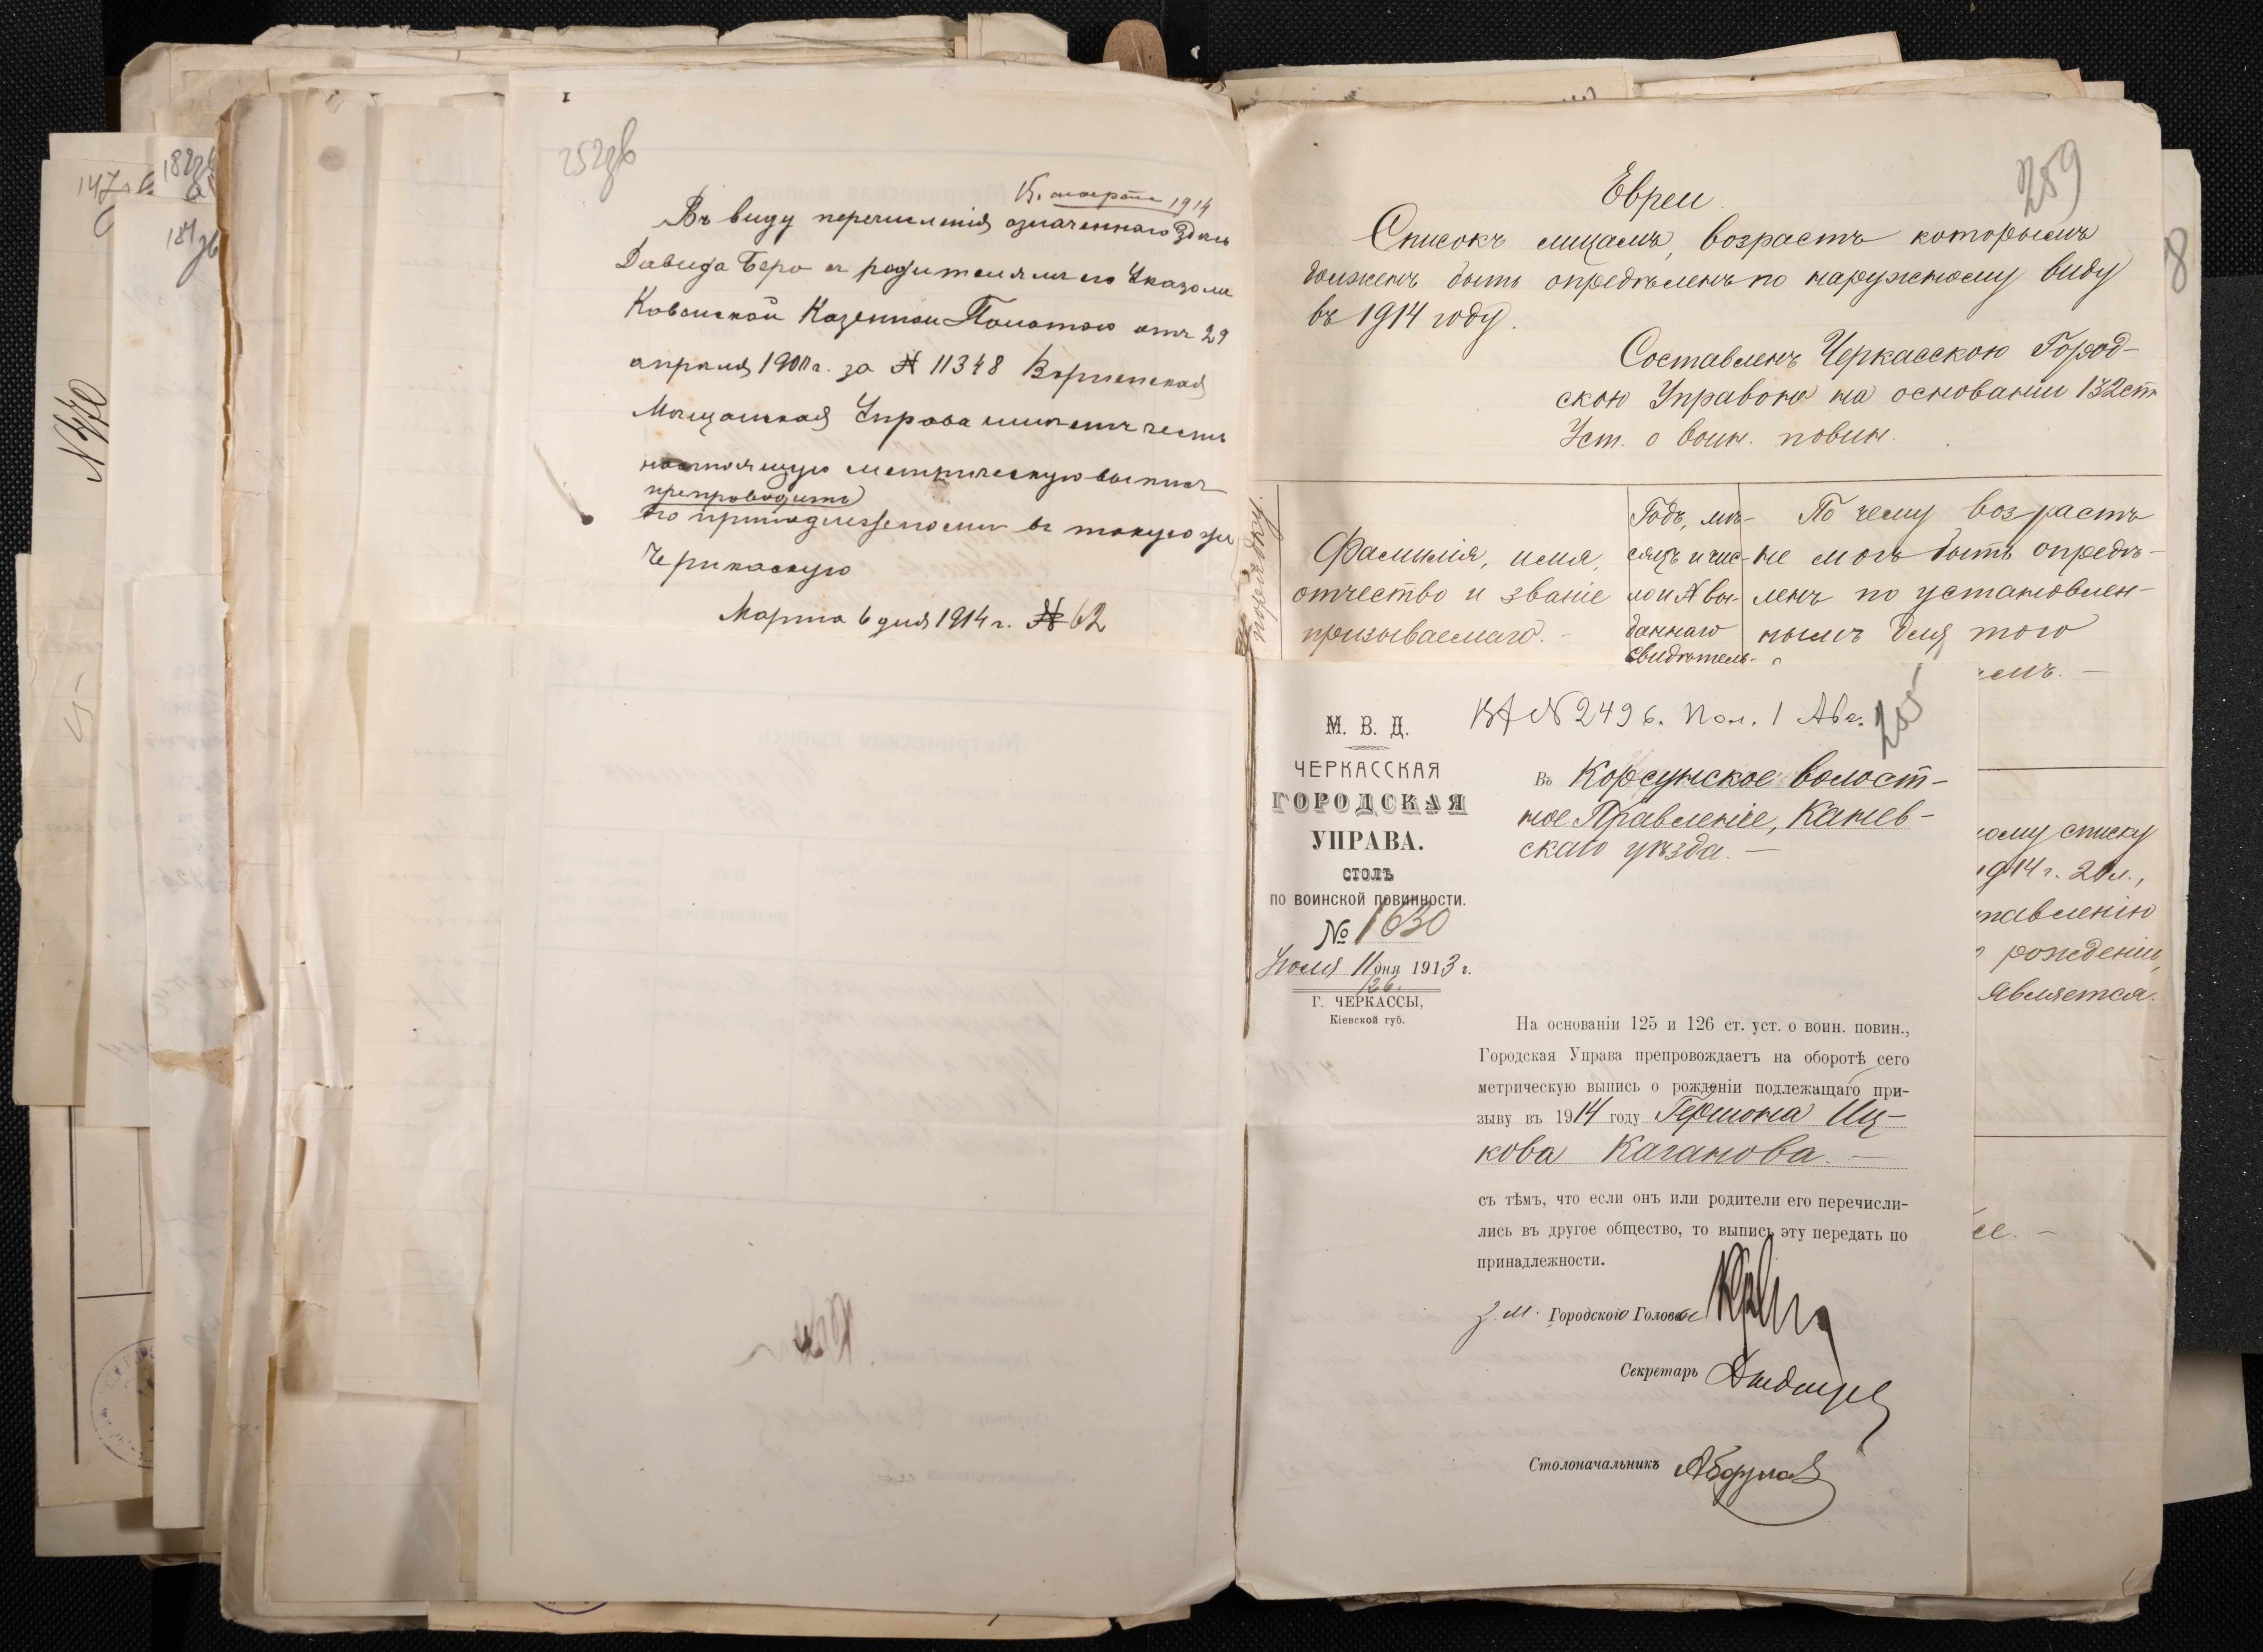 147
182
184
N 470
252 зв
15. марта 1914
Въ виду перечисленія означеннаго здѣсь
Давида Беро съ родителями его Указомъ
Ковенской Казенной Палатою отъ 29
апрѣля 1900 г. за № 11348
Мѣщанская Управа имѣетъ честь
настоящую метрическую выпись
препроводить
по принадлежности въ такую же
Черкасскую
Марта 6 дня 1914 г. № 62
259
8
Евреи.
Списокъ лицамъ, возрастъ которымъ
долженъ быть опредѣленъ по наружному виду
въ 1914 году.
Составленъ Черкасскою Город-
скою Управою на основаніи 132 ст.
Уст. о воин. повин.
порядку.
Фамилія, имя,
отчество и званіе
призываемаго. -
Годъ, мѣ-
сяцъ и чис-
ло и № вы-
даннаго
свидѣтель-
По чему возрастъ
не могъ быть опредѣ-
ленъ по установлен-
нымъ для того
емъ. -
ому списку
1914 г. 20 л.,
тавленію
рожденіи,
является.
ВА № 2496. Пол. 1 Авг.
М. В. Д.
ЧЕРКАССКАЯ
ГОРОДСКАЯ
УПРАВА.
СТОЛЪ
ПО ВОИНСКОЙ ПОВИННОСТИ.
№ 1630
Іюля 11 дня 1913 г.
126.
Г. ЧЕРКАССЫ,
Кіевской губ.
Въ Корсунское волост-
ное Правленіе, Канев-
скаго уѣзда. -
На основаніи 125 и 126 ст. уст. о воин. повин.,
Городская Управа препровождаетъ на оборотѣ сего
метрическую выпись о рожденіи подлежащаго при-
зыву въ 1914 году Гершона Иц-
кова Каганова. -
съ тѣмъ, что если онъ или родители его перечисли-
лись въ другое общество, то выпись эту передать по
принадлежности.
З. м. Городского Головы
Секретарь
Столоначальникъ